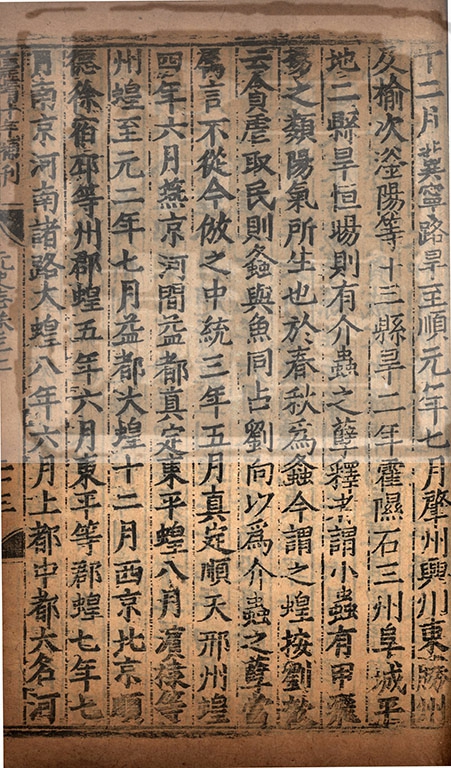 十二月冀寧路旱至順元年七月肇州興州東勝州
及榆次滏陽等十三縣旱二年霍隰石三州阜城平
地二縣旱恒暘則有介蟲之孽釋者謂小蟲有甲飛
揚之類陽氣所生也於春秋為螽今謂之蝗按劉歆
云貪虐取民則螽與魚同占劉向以爲介蟲之孽當
爲言不從今倣之中統三年五月真定順天邢州蝗
四年六月燕京河間益都真定東平蝗八月濵棣等
州蝗至元二年七月益都大蝗十二月西京北京順
德徐宿邳等州郡蝗五年六月東平等郡蝗七年七
月南京河南諸路大蝗八年六月上都中都大名河
年補刊